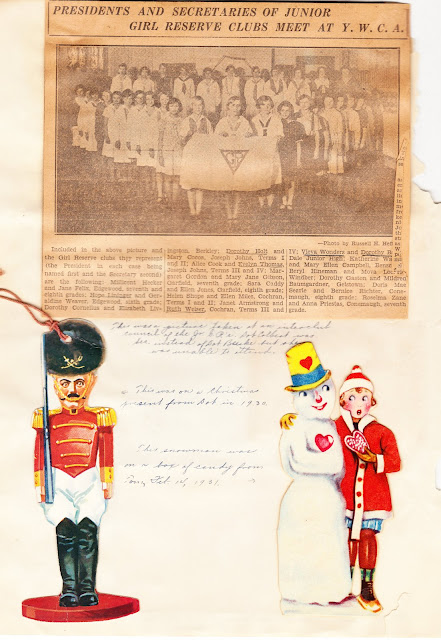 PRESIDENTS AND SECRETARIES OF JUNIOR
GIRL RESERVE CLUBS MEET AT Y. W. C. A.
—Photo by Russell H. Heffley
Included in the above picture and
the Girl Reserve clubs they represent
(the President in each case being
named first and the Secretary second)
are the following: Millicent Hooker
and Jane Bantly, Edgewood, seventh and
eighth grades; Hope and Ger-
aldine Watkins, Edgewood, sixth grade;
Dorothy Cornelius and Elizabeth Liv-
ingston, Berkley; Dorothy Holt and
Mary Coros, Joseph Johns, Terms I
and II; Alice Cook and Evelyn Thomas,
Joseph Johns, Terms III and IV; Mar-
garet Gordon and Mary Jane Gibson,
Garfield, seventh grade; Sara Cuddy
and Ellen Jones, Garfield, eighth grade;
Helen Shope and Ellen Miles, Cochran,
Terms I and II; Janet Armstrong and
Ruth Weiser, Cochran, Terms III and
IV; Viera Wonders and Dorothy
Dale Junior High; Katherine
and Mary Ellen Campbell,
Beryl Hineman and
Windber; Dorothy Custon and Mildred
Baumgardner, Geistown; Doris Mae
Searle and Bernice Richter, Cone-
maugh, eighth grade; Roselma Zane
and Anna Priestas, Conemaugh, seventh
grade.
This was a picture taken at an interclub
council
instead of Dot Blake but she
was unable to attend.
This was on a Christmas
present from Dot in 1930.
This snowman was
on a box of candy from
Tony Feb 14, 1931.